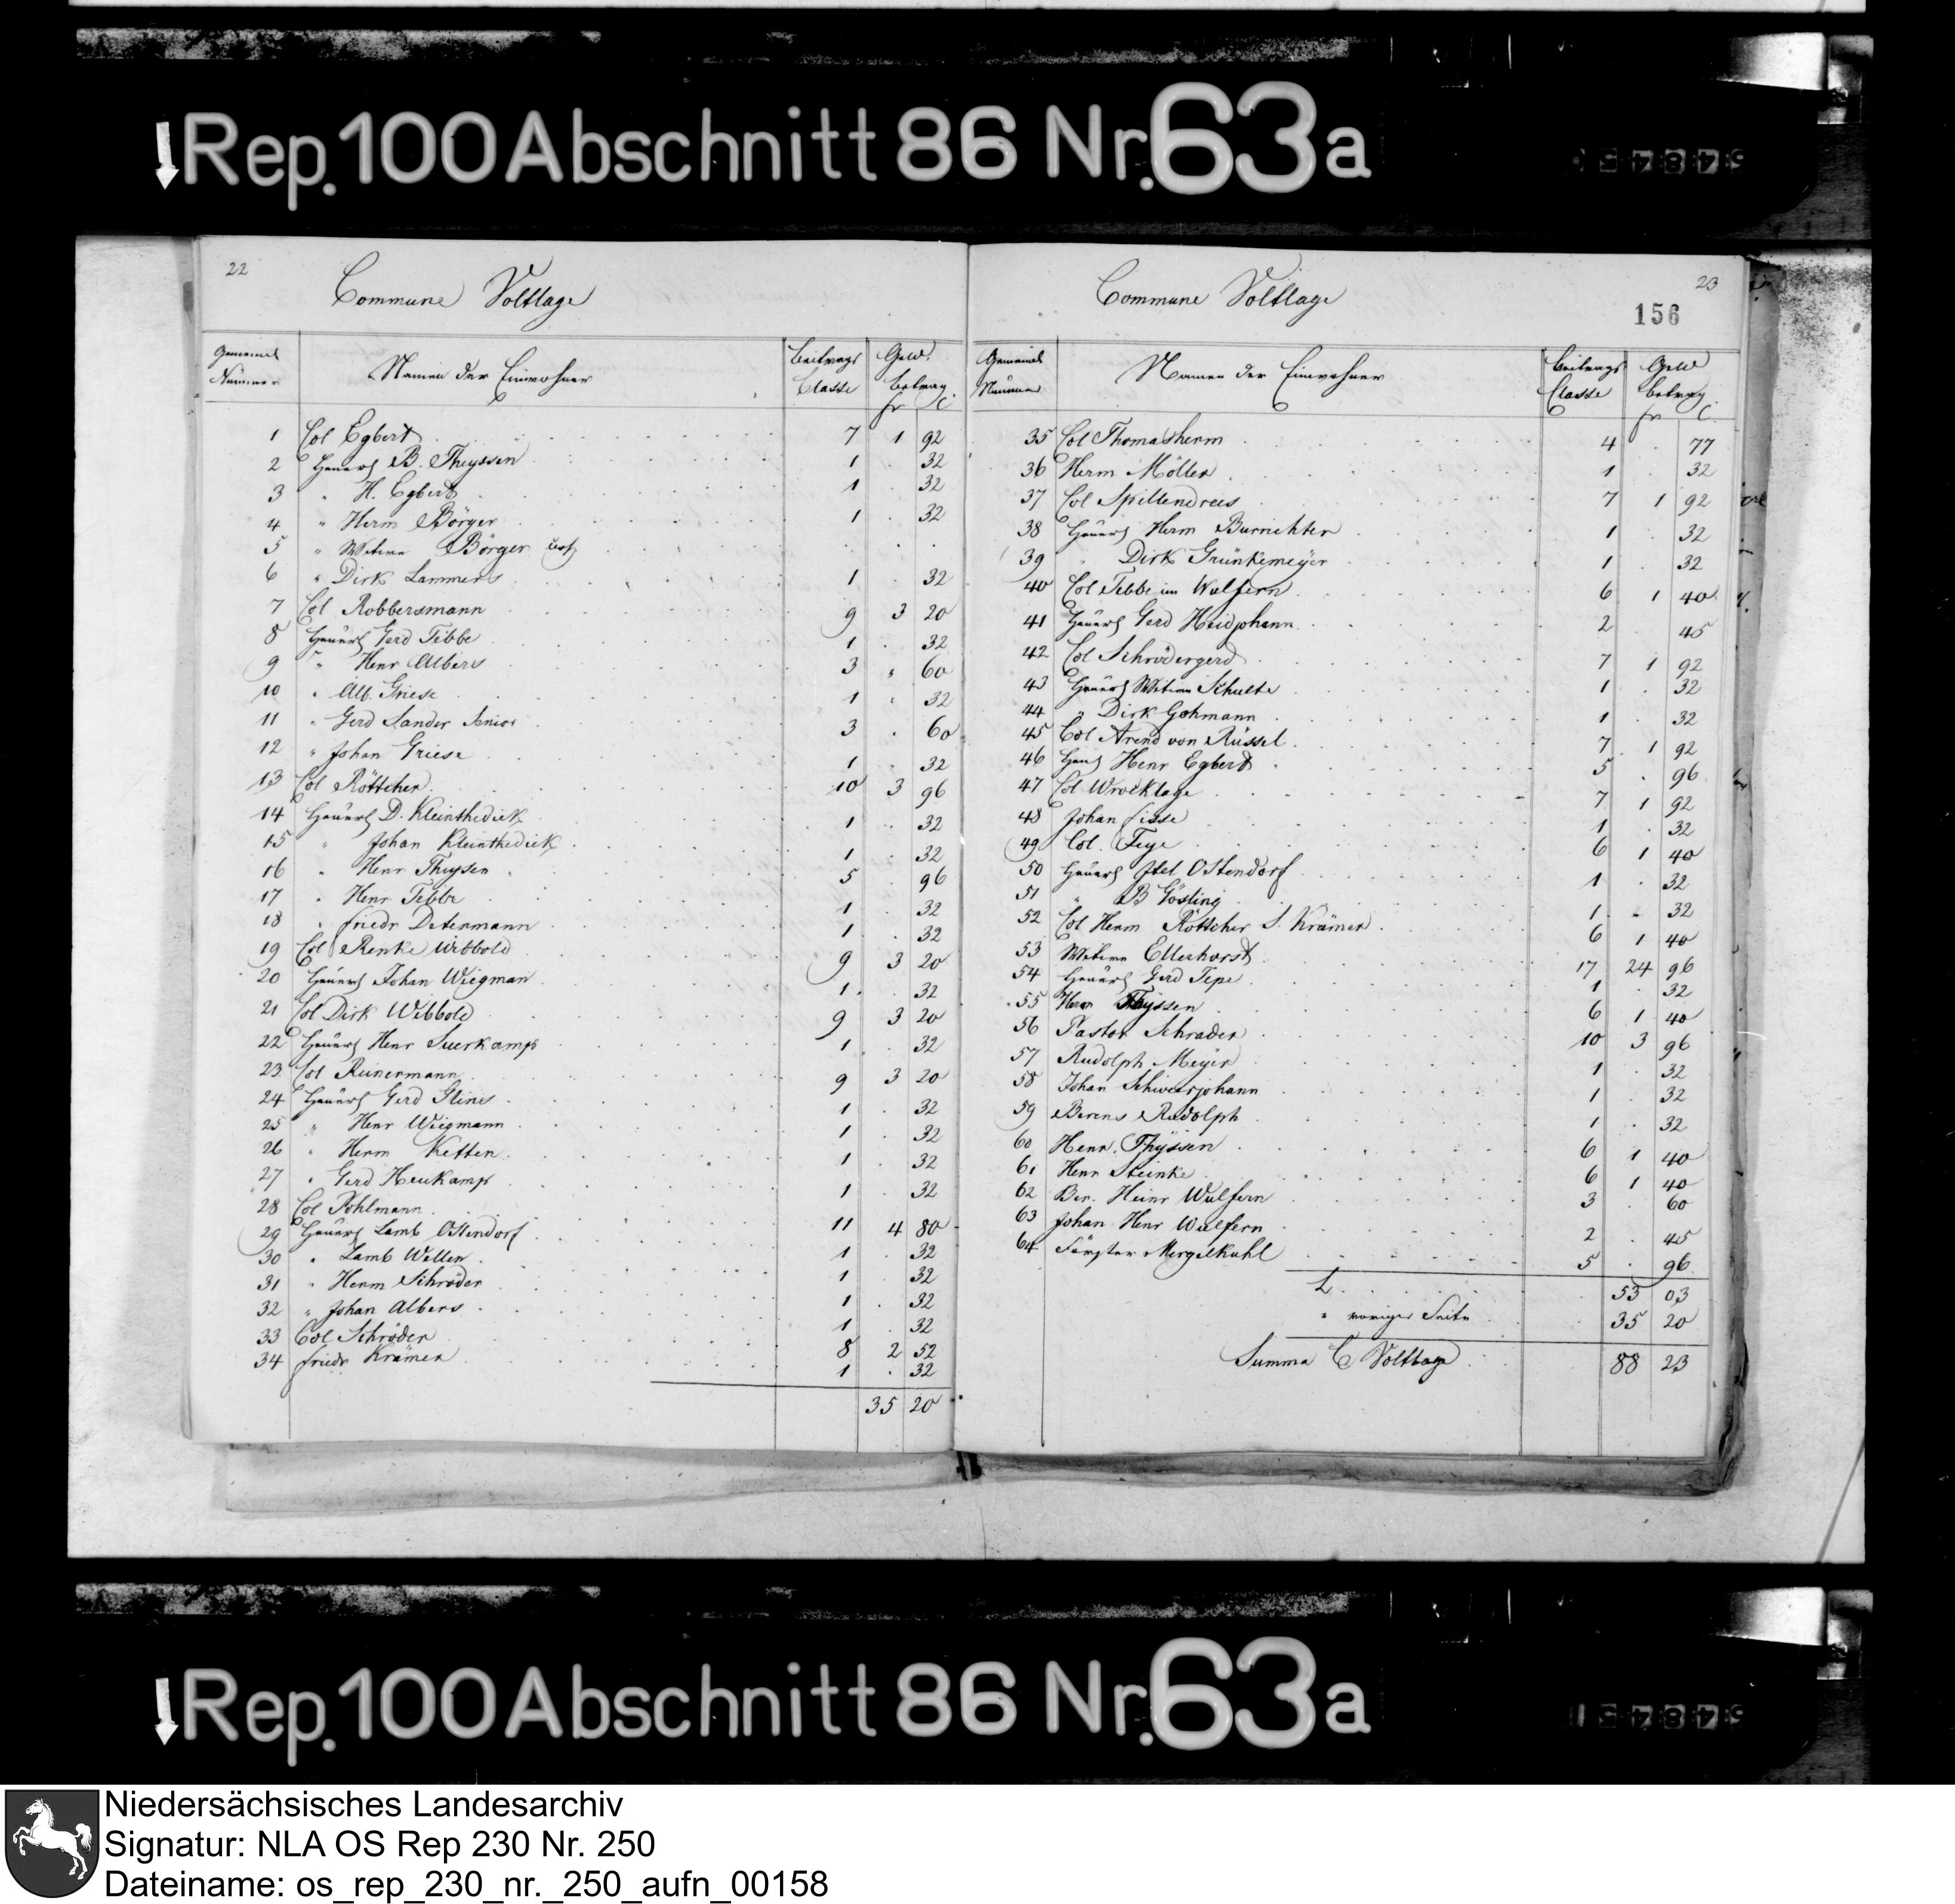 Rep. 100 Abschnitt 86 Nr. 63a
22
Commune Voltlage
Gemeinds Nummer Namen der Einwohner Beitrags Classe Geld betrag fr C.
1 Col Egbert 7 1 92
2 Heuerl B. Theyssen 1 . 32
3 " H. Egbert 1 . 32
4 " Herm Börger 1 . 32
5 " Wittwe Börger
6 " Dirk Lammers 1 . 32
7 Col Robbersmann 9 3 20
8 Heuerl Gerd Tebbe 1 . 32
9 " Henr Albers 3 . 60
10 " Alb. Griese 1 . 32
11 " Gerd Sander Senior 3 . 60
12 " Johan Griese 1 . 32
13 Col Röttcher 10 3 96
14 Heuerl D. Kleinthediek 1 . 32
15 " Johan Kleinthediek 1 . 32
16 " Henr Thysen 5 . 96
17 " Henr Tebbe 1 . 32
18 " Friedr Determann 1 . 32
19 Col Renke Wibbold 9 3 20
20 Heuerl Johan Wiegman 1 . 32
21 Col Dirk Wibbold 9 3 20
22 Heuerl Henr Suerkamp 1 . 32
23 Col Runermann 9 3 20
24 Heuerl Gerd Stines 1 . 32
25 " Henr Wiegmann 1 . 32
26 " Herm Ketten 1 . 32
27 " Gerd Heukamp 1 . 32
28 Col Pohlmann 11 4 80
29 Heuerl Lamb Ostendorf 1 . 32
30 " Lamb Wellen 1 . 32
31 " Herm Schröder 1 . 32
32 " Johan Albers 1 . 32
33 Col Schröder 8 2 52
34 Friedr Krämer 1 . 32
35 20
23
156
Commune Voltlage
Gemeinds Nummer Namen der Einwohner Beitrags Classe Geld betrag fr C.
35 Col Thomasherm 4 . 77
36 Herm Möller 1 . 32
37 Col Spillendrees 7 1 92
38 Heuerl Herm Burrichter 1 . 32
39 " Dirk Grünkemeyer 1 . 32
40 Col Tebbe im Wulfern 6 1 40
41 Heuerl Gerd Heidjohann 2 . 45
42 Col Schrödergerd 7 1 92
43 Heuerl Wittwe Schulte 1 . 32
44 " Dirk Gohmann 1 . 32
45 Col Arend von Rüssel 7 1 92
46 Heuerl Henr Egbert 5 . 96
47 Col Wrocklage 7 1 92
48 Johan Lisse 1 . 32
49 Col. Feye 6 1 40
50 Heuerl Ostendorf 1 . 32
51 " B Gösling 1 . 32
52 Col Herm Röttcher S. Krämer 6 1 40
53 Wittwe Ellerhorst 17 24 96
54 Heuerl Gerd Tepe 1 . 32
55 Herm Thyssen 6 1 40
56 Pastor Schrader 10 3 96
57 Rudolph Meyer 1 . 32
58 Johan Schwersjohann 1 . 32
59 Berens Rudolph 1 . 32
60 Henr. Thyssen 6 1 40
61 Henr Steinke 6 1 40
62 Ber. Heinr Wulfern 3 . 60
63 Johan Henr Wulfern 2 . 45
64 Förster Mergelkuhl 5 . 96
53 03
" voriger Seite 35 20
Summa C Voltlage 88 23
Rep. 100 Abschnitt 86 Nr. 63a
Niedersächsisches Landesarchiv
Signatur: NLA OS Rep 230 Nr. 250
Dateiname: os_rep_230_nr._250_aufn_00158